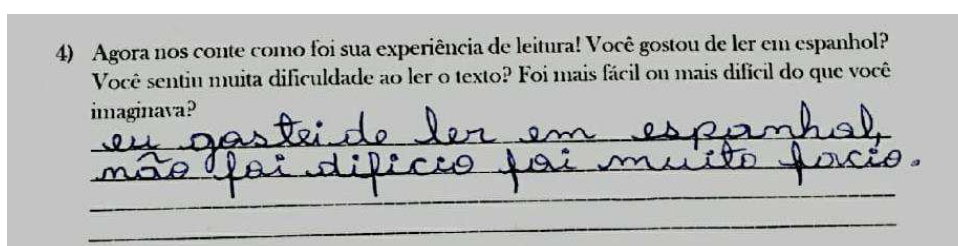 4) Agora nos conte como foi sua experiência de leitura! Você gostou de ler em espanhol?
Você sentiu muita dificuldade ao ler o texto? Foi mais fácil ou mais difícil do que você
imaginava?
eu gostei de ler em espanhol,
não foi dificio foi muito facio.